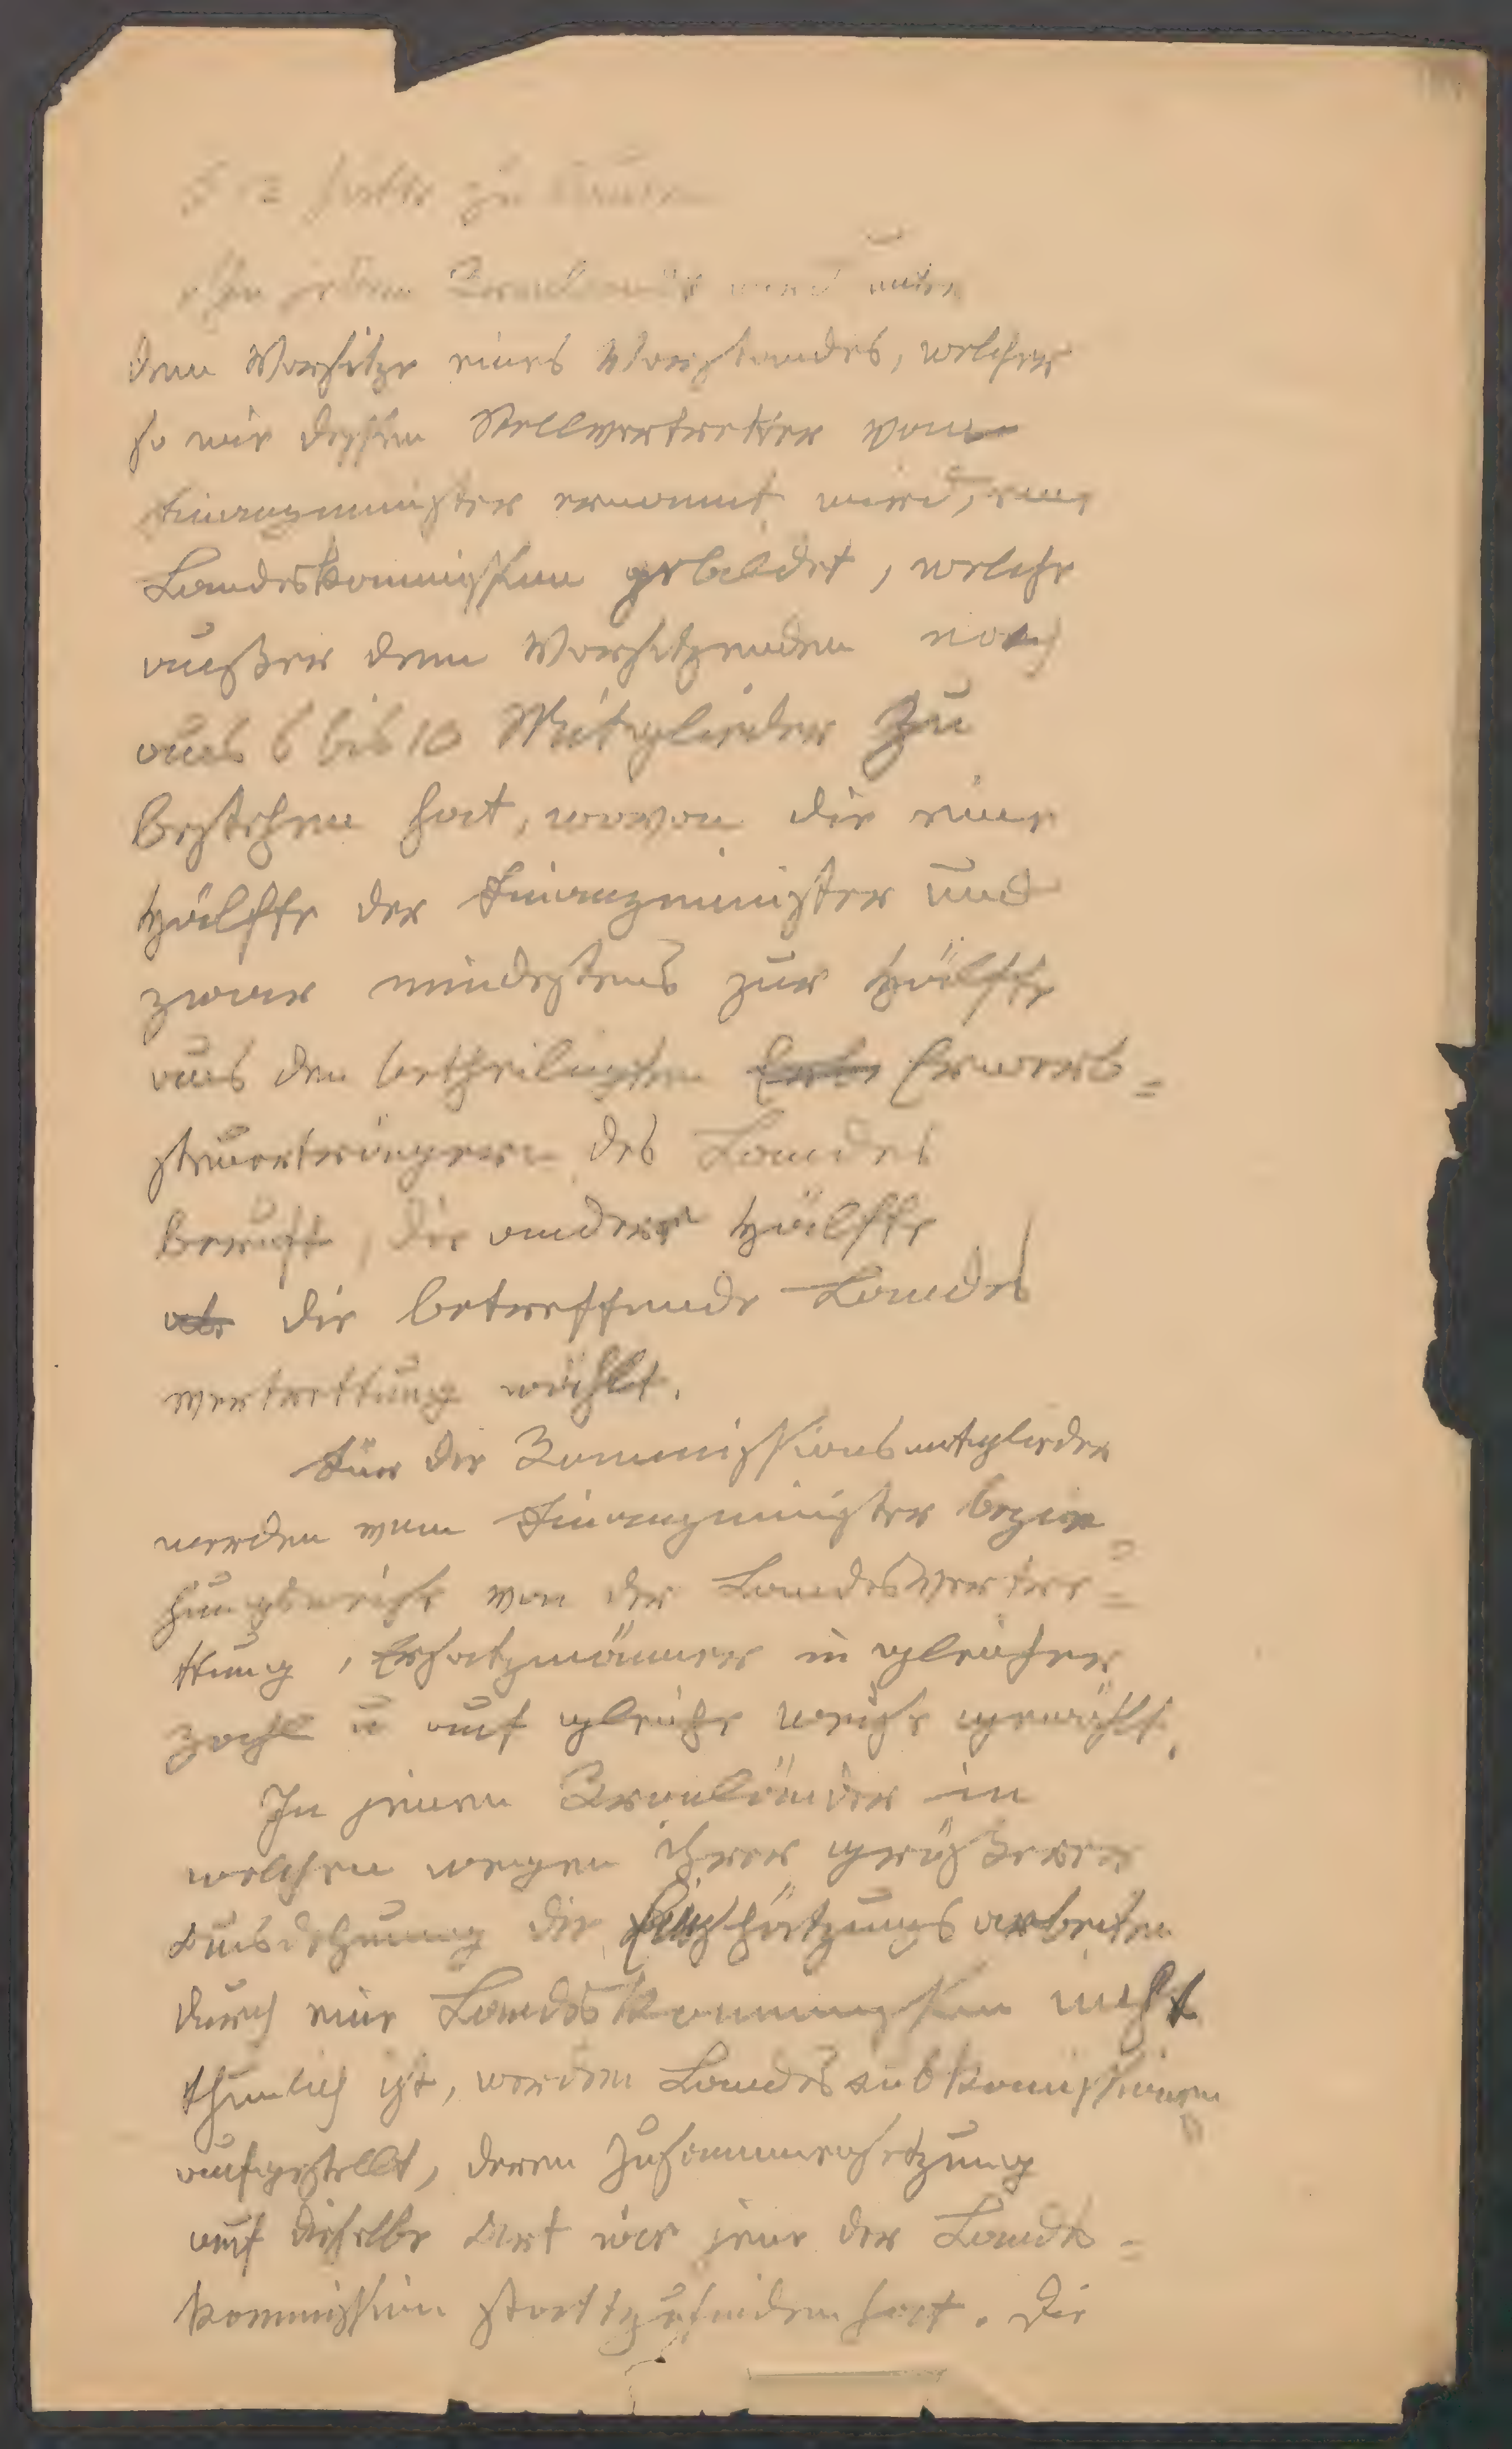 § 12 hatte zu lauten
In jedem Kronlande wird unter
dem Vorsitze eines Vorstandes, welcher
so wie dessen Stellvertretter vom
Finanzminister ernannt wird, eine
Landeskommission gebildet, welche
außer dem Vorsitzenden noch
aus 6 bis 10 Mitglieder zu
bestehen hat, wovon die eine
Hälfte der Finanzminister und
zwar mindestens zur Hälfte
aus den betheiligten Erwerb=
steuerträgern des Landes
beruft, die andere Hälfte
die betreffende Landes
vertrettung wählt.
Für die Kommissionsmitglieder
werden vom Finanzminister bezie
hungsweise von der Landesvertre=
ttung, Ersatzmänner in gleicher
Zahl u auf gleiche Weise gewählt.
In jenen Kronländer in
welchen wegen ihrer größeren
Ausdehnung die Einschätzungsarbeiten
durch eine Landeskommission nicht
thunlich ist, werden Landessubkomissionen
aufgestellt, deren Zusammensetzung
auf dieselbe Art wie jene der Landes=
kommission stattzufinden hat. Die